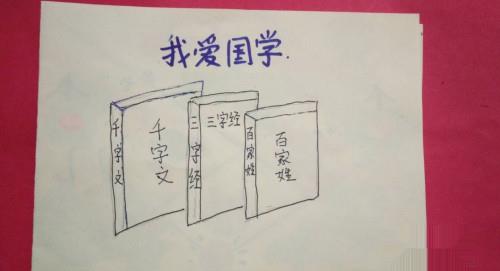 我爱国学.
千字文
千字文
三字经
三字经
百家姓
百家姓